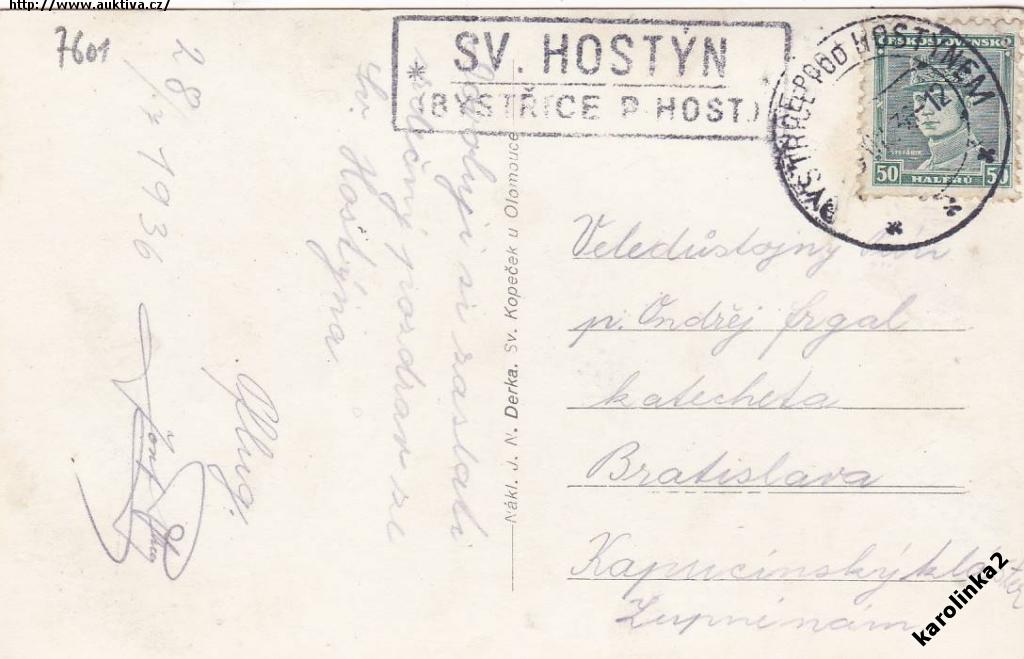 http://www.auktiva.cz/
7601
SV. HOSTÝN
(BYSTŘICE P. HOST.)
BYSTŘICE POD HOSTÝNEM
ČESKOSLOVENSKO
ŠTEFÁNIK
50 HALÉŘŮ 50
Dovoluji si zaslati
srdečný pozdrav ze
Sv. Hostýna.
28/ 1936
Josef
Nákl. J. N. Derka. Sv. Kopeček u Olomouce
Veledůstojný Pán
p. Ondřej Grgal
katecheta
Bratislava
Kapucínský kláster
Zupní nám
karolinka2